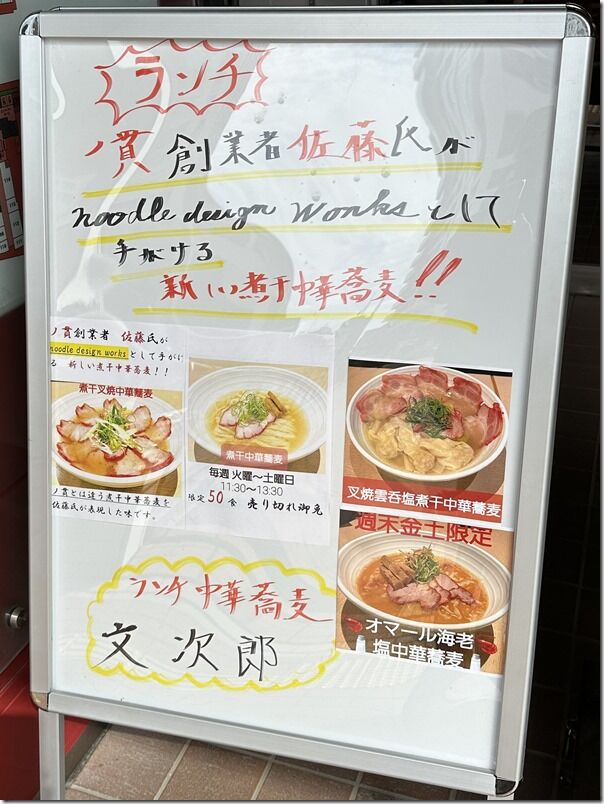 ランチ
ノ貫 創業者 佐藤氏が
noodle design works として
手がける
新しい煮干中華蕎麦!!
ノ貫創業者 佐藤氏が
noodle design works として手がけ
る 新しい煮干中華蕎麦!!
煮干叉焼中華蕎麦
ノ貫とは違う煮干中華蕎麦を
佐藤氏が表現した味です。
煮干中華蕎麦
毎週 火曜〜土曜日
11:30〜13:30
限定 50 食 売り切れ御免
叉焼雲呑塩煮干中華蕎麦
週末金土限定
オマール海老
塩中華蕎麦
ランチ中華蕎麦
文次郎